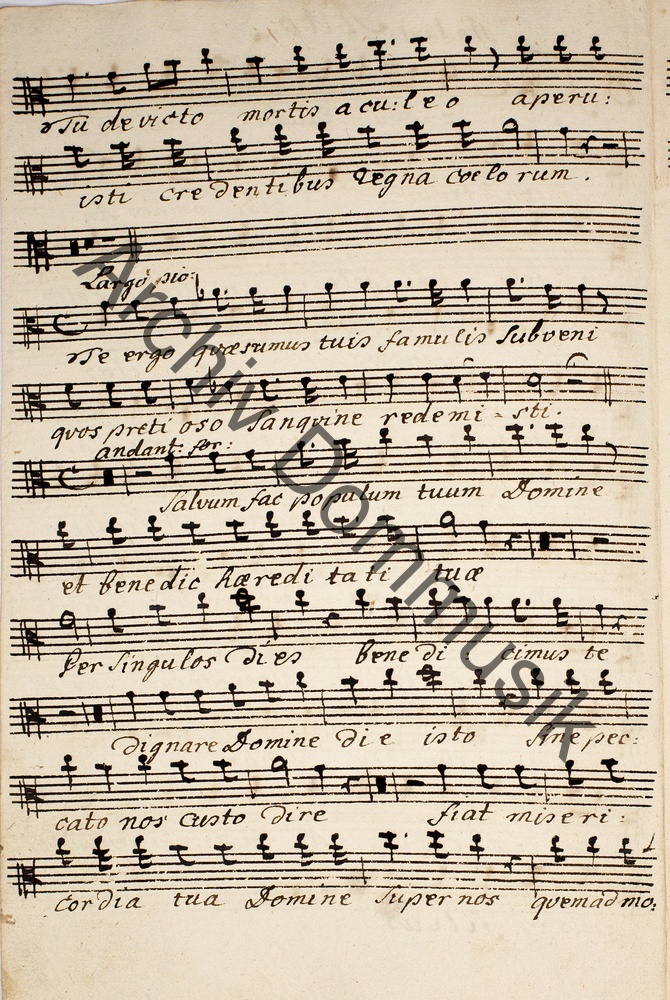 Tu devicto mortis acu: leo aperu:
isti credentibus regna coelorum.
Largo pio:
Te ergo quæsumus tuis famulis subveni
quos preti oso sanguine redemi - sti.
andant: for:
Salvum fac populum tuum Domine
et benedic hæredi tati tuæ
Per singulos dies benedi : cimus te
Dignare Domine die isto sine pec:
cato nos custo dire fiat miseri:
cordia tua Domine super nos quemadmo:
Archiv Dommusik